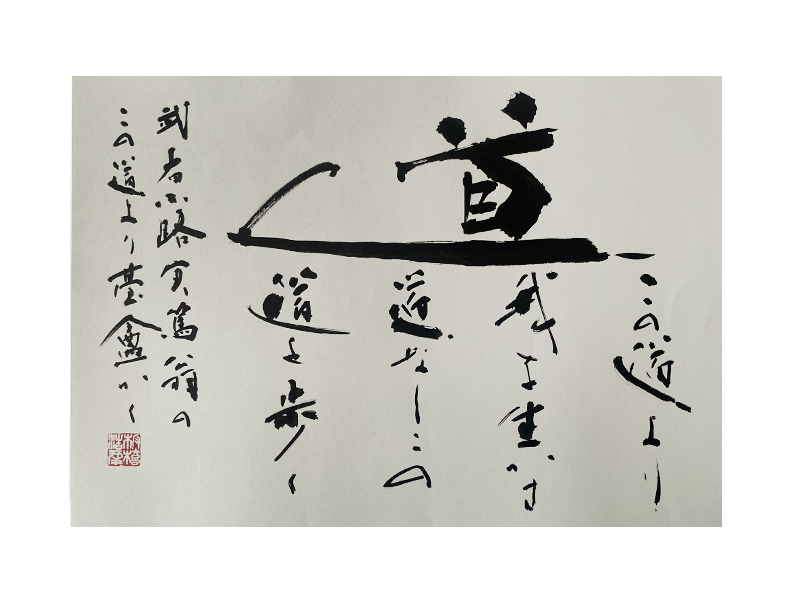 道
この道より
我を生かす
道なしこの
道を歩く
武者小路実篤翁の
この道より かく